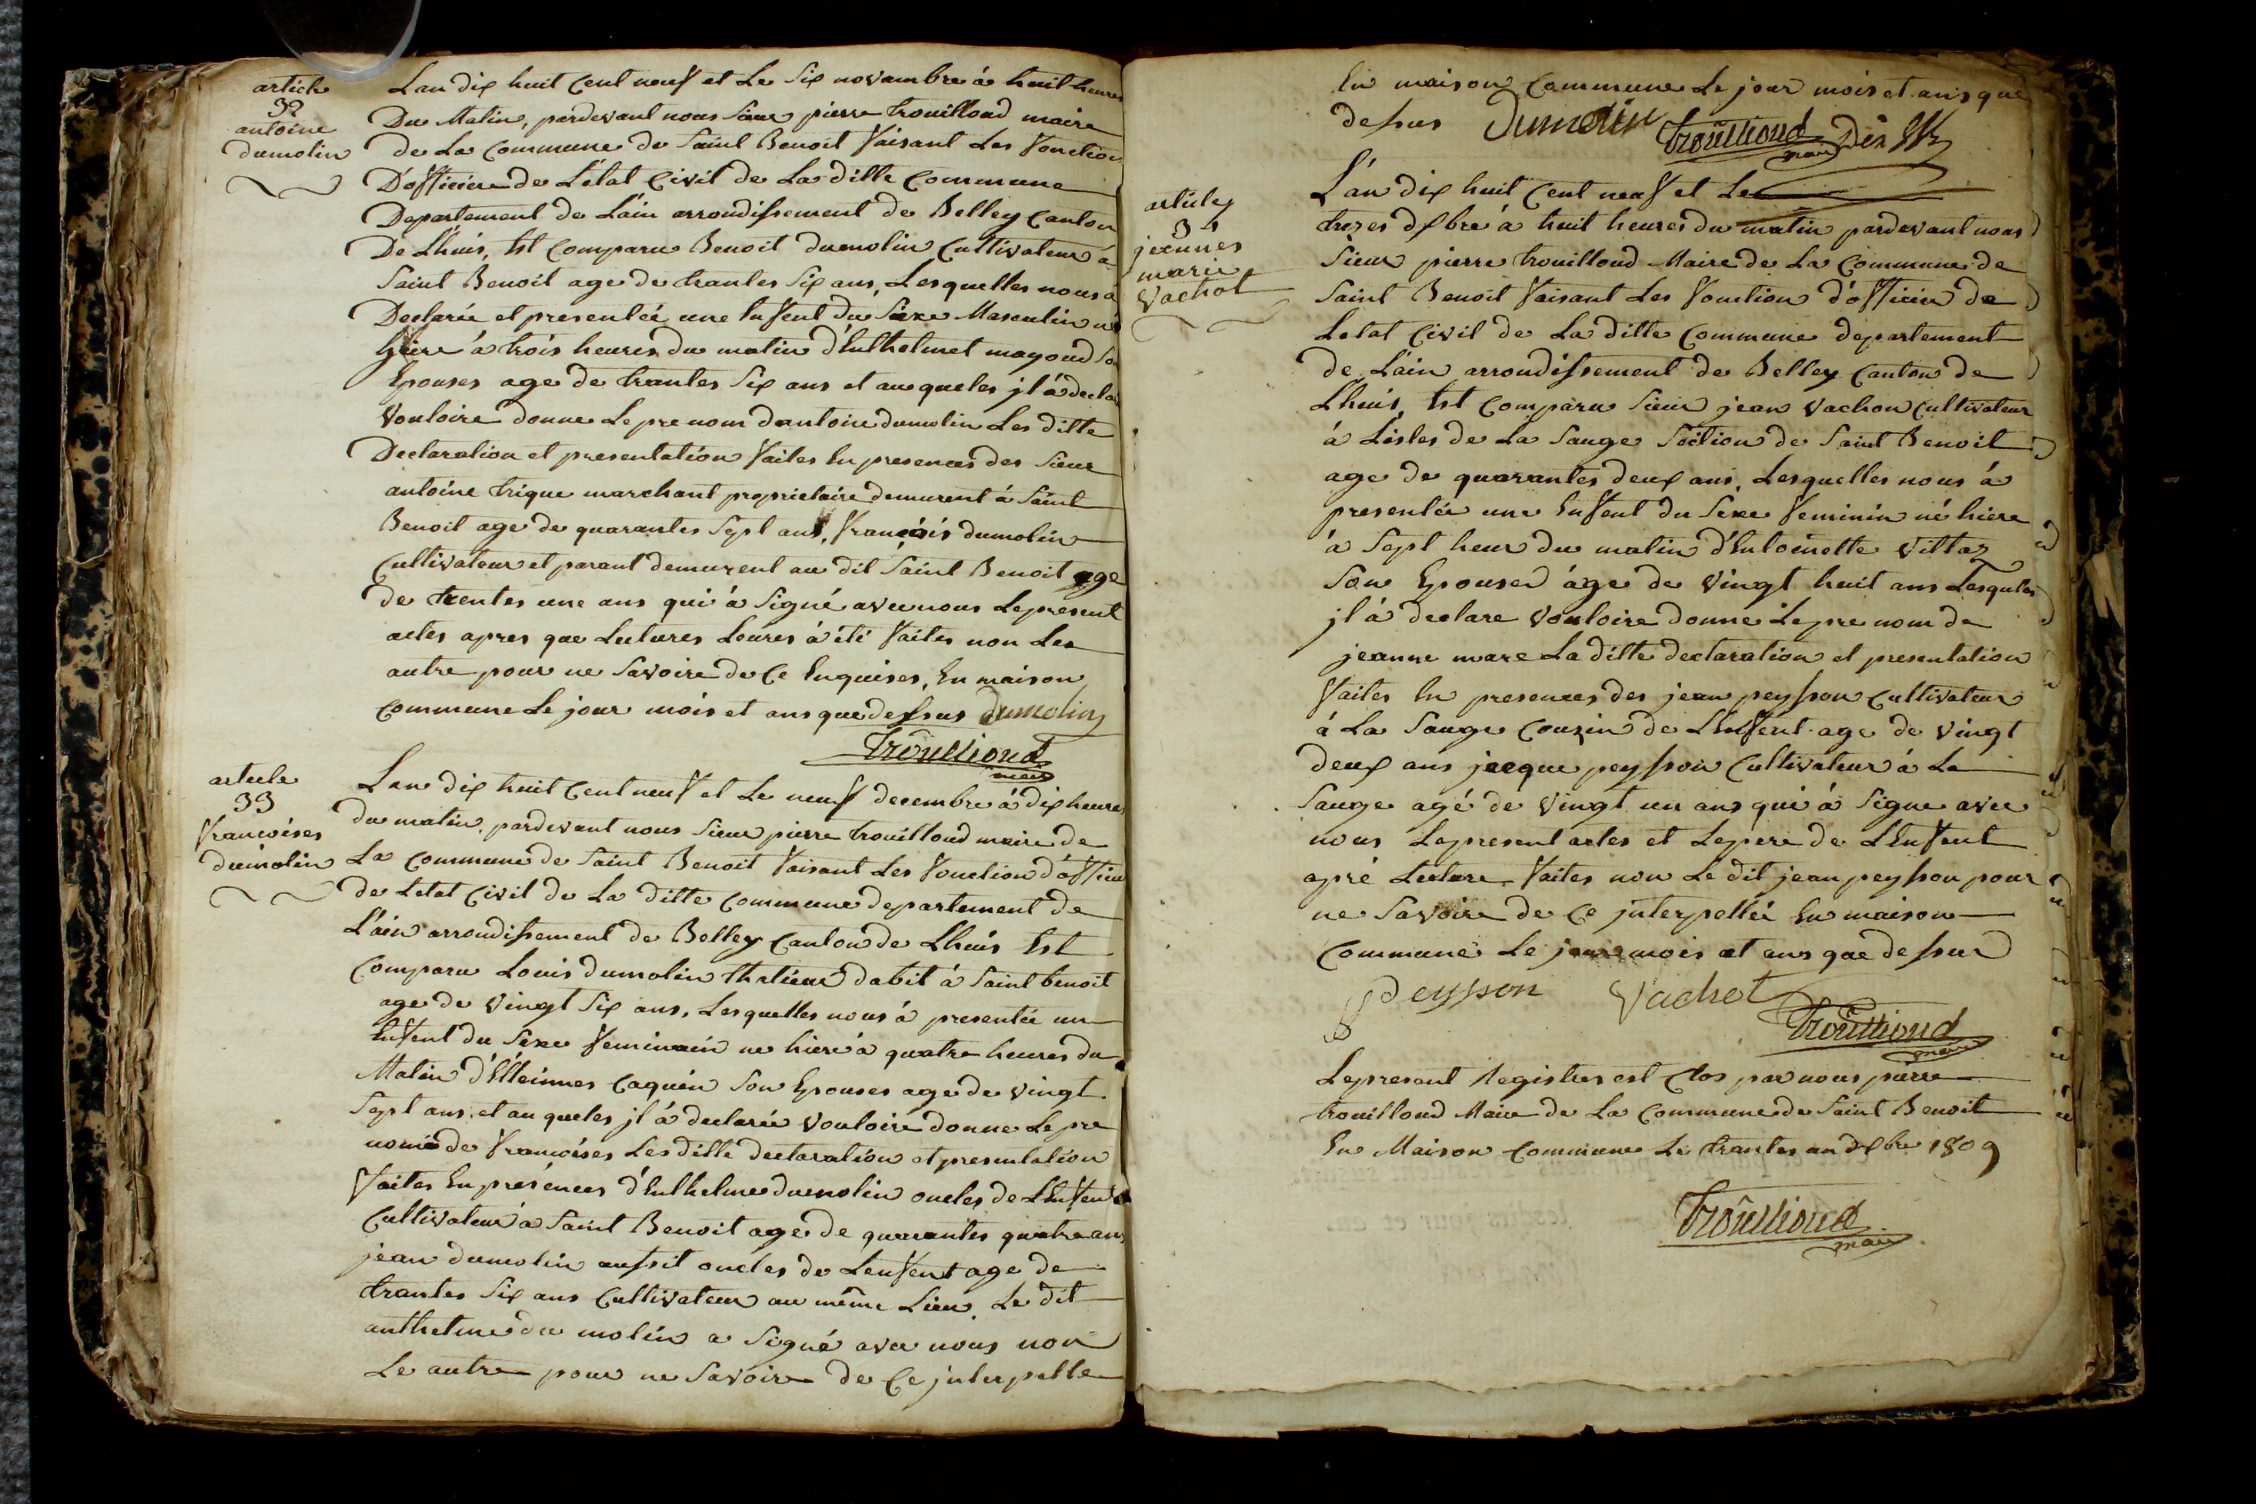 article
32
antoine
dumolin
Lan dix huit Cent neuf et Le Six novambre à huit heures
Du Matin, pardevant nous Sieur pierre trouilloud maire
de La Commune de Saint Benoit faisant Les fonction
D'officier de L'état Civil de La ditte Commune
Departement de L'ain arrondissement de Belley Canton
De Lhuis, Est Comparu Benoit dumolin Cultivateur à
Saint Benoit age de trantes Six ans, Lesquelles nous à
Declarée et presentée une Enfent du Sexe Masculin né
hiere à trois heures du matin d'Enthelmet mayoud Son
Epouses age de trantes Six ans et auqueles jl à decla
Vouloire donne Le pre nom dantoine dumolin Les ditte
Declaration et presentation faites En presences des Sieur
antoine trique marchant proprietaire demurent à Saint
Benoit age de quarantes Sept ans, françois dumolin
Cultivateur et parant demurent au dit Saint Benoit age
de trentes une ans qui à Signé avec nous Le present
actes apres que Lectures Loures à été faites non Les
autre pour ne Savoire de Ce Enquises, En maison
Commune Le jour mois et ans que dessus dumolin
trouilloud
maire
article
33
francoises
dumolin
Lan dix huit Cent neuf et Le neuf decembre à dix heures
du matin, pardevant nous Sieur pierre trouilloud maire de
La Commune de Saint Benoit faisant Les fonction d'officier
de Letat Civil de La ditte Commune departement de
L'ain arrondissement de Belley Canton de Lhuis Est
Comparu Louis dumolin dabit à Saint benoit
age de vingt Six ans, Lesquelles nous à presentée un
Enfent du Sexe feminain ne hiere à quatre heures du
Matin d'Etteinnes Caquin Son Epouses age de vingt
Sept ans, et auqueles jl à declarée Vouloire donne Le pre
nom de francoises Les ditte declaration et presentation
faites En présences d'Enthelme dumolin oncles de L'Enfent
Cultivateur à Saint Benoit age de quarantes quatre ans
jean dumolin aussit oncles de Lenfent age de
trantes Six ans Cultivateur au même Lieu, Le dit
anthelme du molin a Signé avec nous non
Le autre pour ne Savoire de Ce jnterpelle
En maison Commune Le jour mois et ans que
dessus Dumolin trouilloud
maire
article
34
jeannes
marie
Vachot
L'an dix huit Cent neuf et Le
trezes Xbre à huit heures du matin pardevant nous
Sieur pierre trouilloud Maire de La Commune de
Saint Benoit faisant Les fonction d'officier de
Letat Civil de La ditte Commune departement
de L'ain arrondissement de Belley Canton de
Lhuis, Est Comparu Sieur jean Vachon Cultivateur
à Lisles de La Sauge Section de Saint Benoit
age de quarantes deux ans, Lesquelles nous à
presentée une Enfent du Sexe feminin né hiere
à Sept heur du matin d'Entoinette Vittoz
Son Epouses âge de vingt huit ans Lesqueles
jl à declare Vouloire donne Le pre nom de
jeanne mare La ditte declaration et presentation
faites En presences des jean peysson Cultivateur
à La Sauge Couzin de L'Enfent age de vingt
deux ans jacque peysson Cultivateur à La
Sauge agé de vingt un ans qui à Signe avec
nous Le present actes et Le pere de L'Enfent
apré Lecture faites non Le dit jean peysson pour
ne Savoire de Ce jnterpellée En maison
Commune Le jour mois et ans que dessus
Peysson Vachot
trouilloud
maire
Le present Registres est Clos par nous pierre
trouilloud Maire de La Commune de Saint Benoit
En Maison Commune Le trantes un Xbre 1809
trouilloud
maire